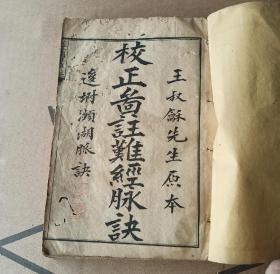 王叔龢先生原本
校正啚註難經脉訣
逡坿瀕湖脈訣